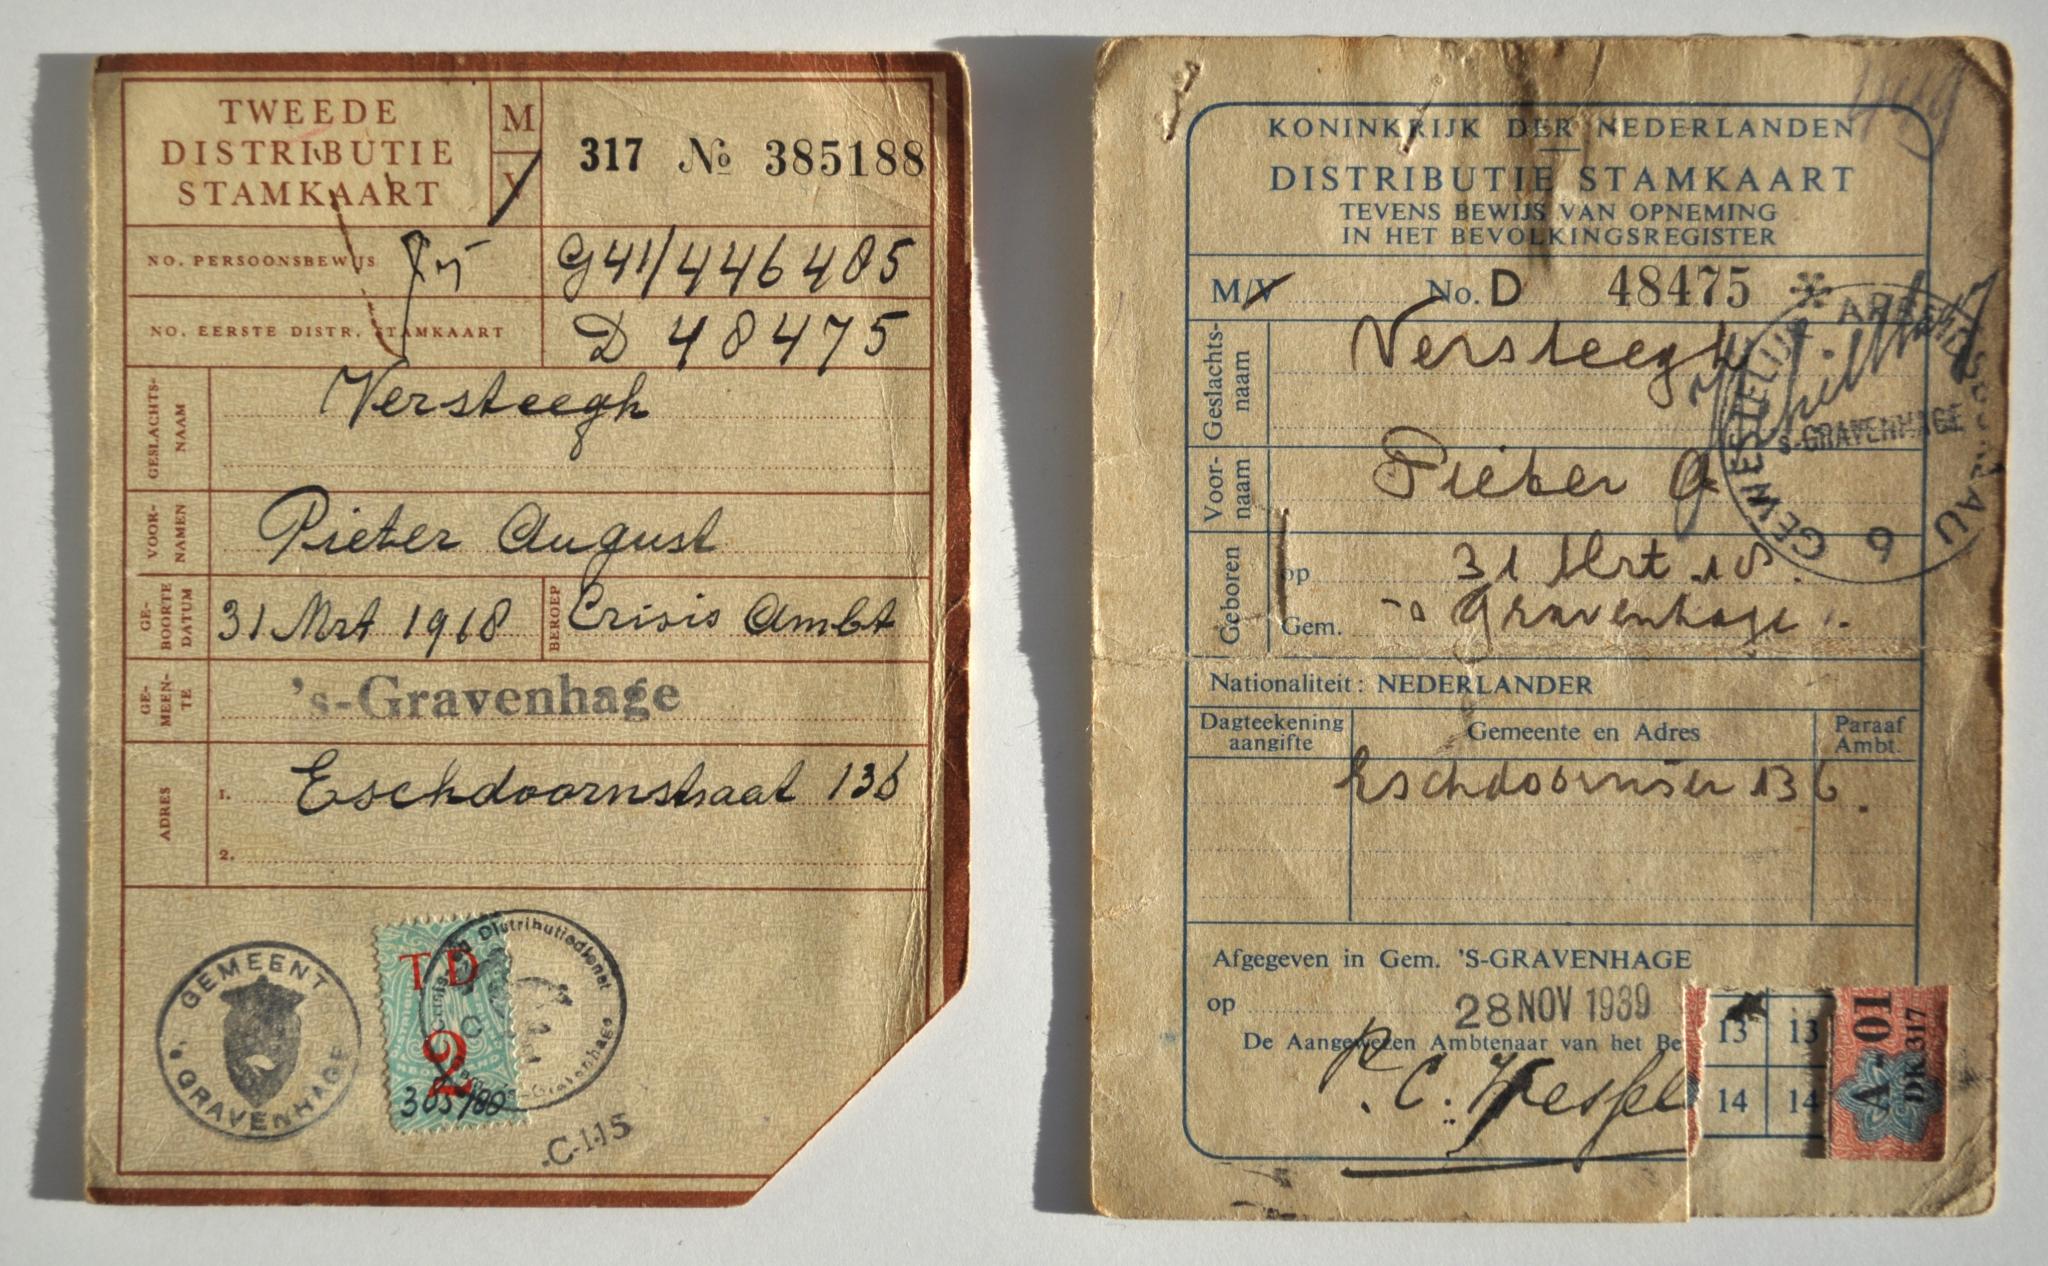 TWEEDE
DISTRIBUTIE
STAMKAART
M
V
317 № 385188
NO. PERSOONSBEWIJS
G41/446405
NO. EERSTE DISTR. STAMKAART
D 48475
GESLACHTS-
NAAM
Versteegh
VOOR-
NAMEN
Pieter August
GE-
BOORTE
DATUM
31 Mrt 1918
BEROEP
Crisis Ambt
GE-
MEEN-
TE
's-Gravenhage
ADRES
1. Eschdoornstraat 136
2.
GEMEENT
's GRAVENHAGE
TD
2
Distributiedienst
C-115
KONINKRIJK DER NEDERLANDEN
DISTRIBUTIE STAMKAART
TEVENS BEWIJS VAN OPNEMING
IN HET BEVOLKINGSREGISTER
M/V No. D 48475
Geslachts-
naam
Versteegh
Voor-
naam
Pieter A
GEWESTELIJK ARBEIDSBUREAU
's-GRAVENHAGE
6
Geboren
op 31 Mrt 18.
Gem. 's Gravenhage
Nationaliteit: NEDERLANDER
Dagteekening
aangifte
Gemeente en Adres
Paraaf
Ambt.
Eschdoornstr 136.
Afgegeven in Gem. 'S-GRAVENHAGE
op 28 NOV 1939
De Aangewezen Ambtenaar van het Be
13 13
14 14
A-01
DK 317